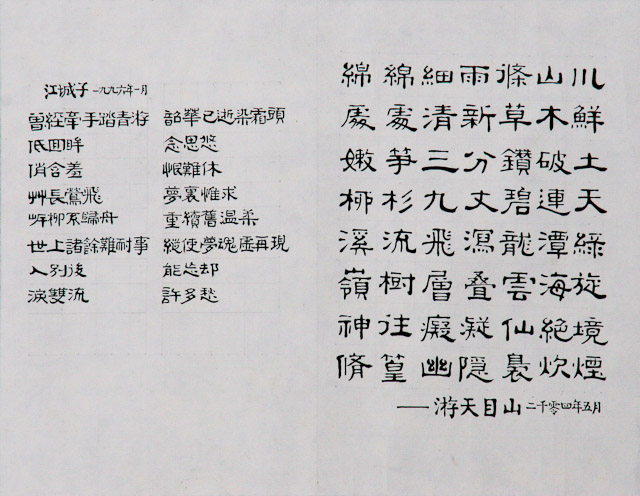 江城子 一九九六年一月
曾經牽手踏青游
低回眸
俏含羞
艸長鶯飛
岸柳系歸舟
世上諸餘難耐事
人別後
淚雙流
韶華已逝染霜頭
念思悠
恨難休
夢裏惟求
重續舊溫柔
縱使夢魂虛再現
能忘却
許多愁
綿綿細雨滌山川
處處清新草木鮮
嫩笋三分鑽破土
柳杉九丈碧連天
溪流飛瀉龍潭綠
嶺樹層叠雲海旋
神往癡凝仙絕境
脩篁幽隱裊炊煙
——游天目山 二千零四年五月